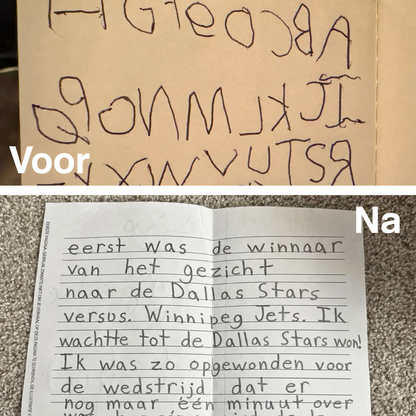 A B C D e f G H
I J K L M N O P Q
R S T U V W X
Voor
Na
eerst was de winnaar
van het gezicht
naar de Dallas Stars
versus. Winnipeg Jets. Ik
wachtte tot de Dallas Stars won!
Ik was zo opgewonden voor
de wedstrijd dat er
nog maar één minuut over